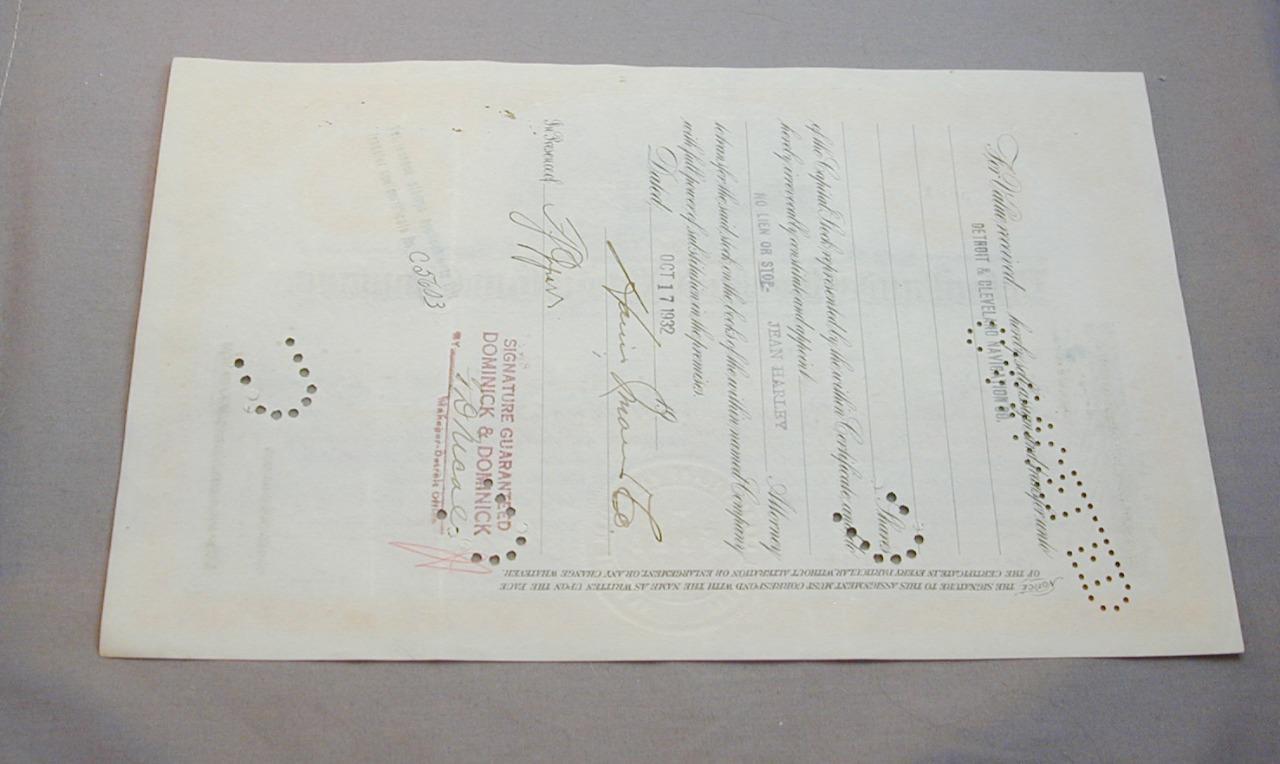 For Value received hereby sell, assign and transfer unto
DETROIT & CLEVELAND NAVIGATION CO.
Shares
of the Capital Stock represented by the within Certificate, and do
hereby irrevocably constitute and appoint
JEAN HARLEY
NO LIEN OR STOP- Attorney
to transfer the said stock on the books of the within named Company
with full power of substitution in the premises.
Dated OCT 17 1932
In Presence of
SIGNATURE GUARANTEED
DOMINICK & DOMINICK
BY
Manager-Detroit Office
C5613
NOTICE. THE SIGNATURE TO THIS ASSIGNMENT MUST CORRESPOND WITH THE NAME AS WRITTEN UPON THE FACE
OF THE CERTIFICATE, IN EVERY PARTICULAR, WITHOUT ALTERATION OR ENLARGEMENT, OR ANY CHANGE WHATEVER.